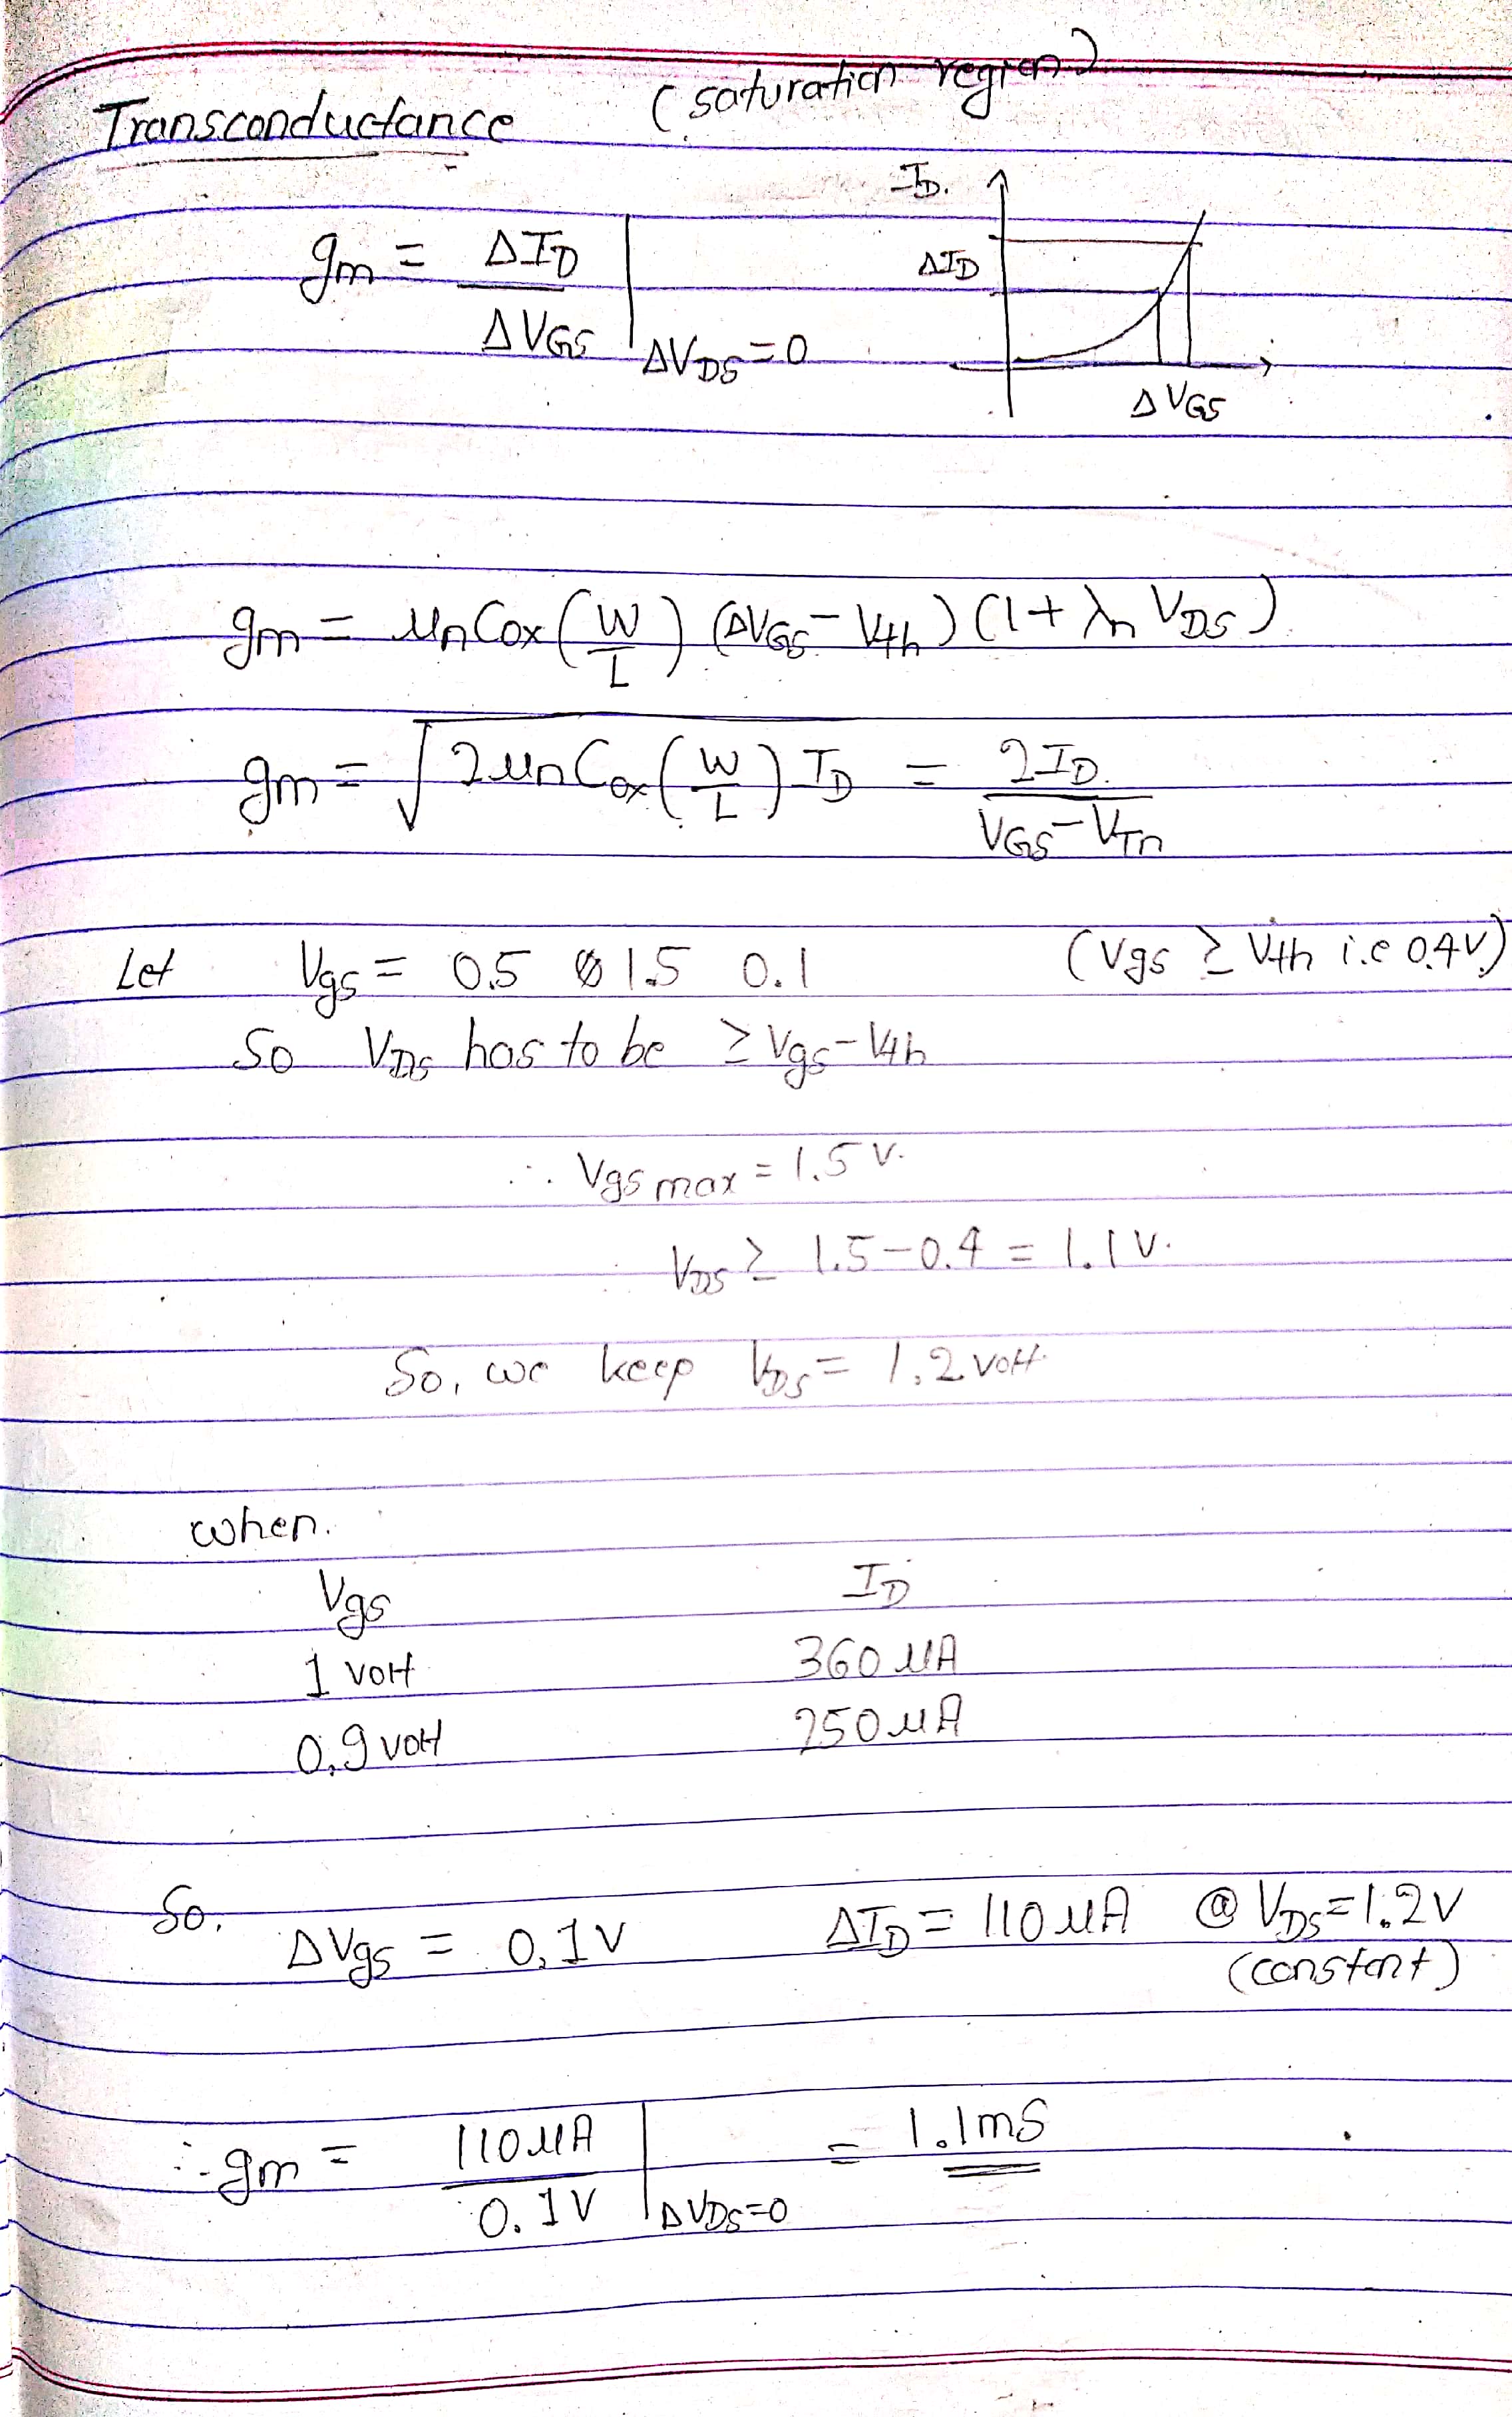 Transconductance (saturation region)
gm = ΔID / ΔVGS | ΔVDS=0
ID.
ΔID
ΔVGS
gm = μnCox (W/L) (ΔVGS - Vth) (1 + λn VDS)
gm = √(2μnCox (W/L) ID) = 2ID. / VGS - VTn
Let Vgs = 0.5 1.5 0.1 (Vgs ≥ Vth i.e 0.4V)
So VDS has to be ≥ Vgs - Vth
∴ Vgs max = 1.5 V.
VDS ≥ 1.5 - 0.4 = 1.1 V.
So, we keep VDS = 1.2 volt
when.
Vgs ID
1 volt 360 μA
0.9 volt 250 μA
So. ΔVgs = 0.1V ΔID = 110 μA @ VDS = 1.2V
(constant)
∴ gm = 110 μA / 0.1V | ΔVDS=0 = 1.1mS